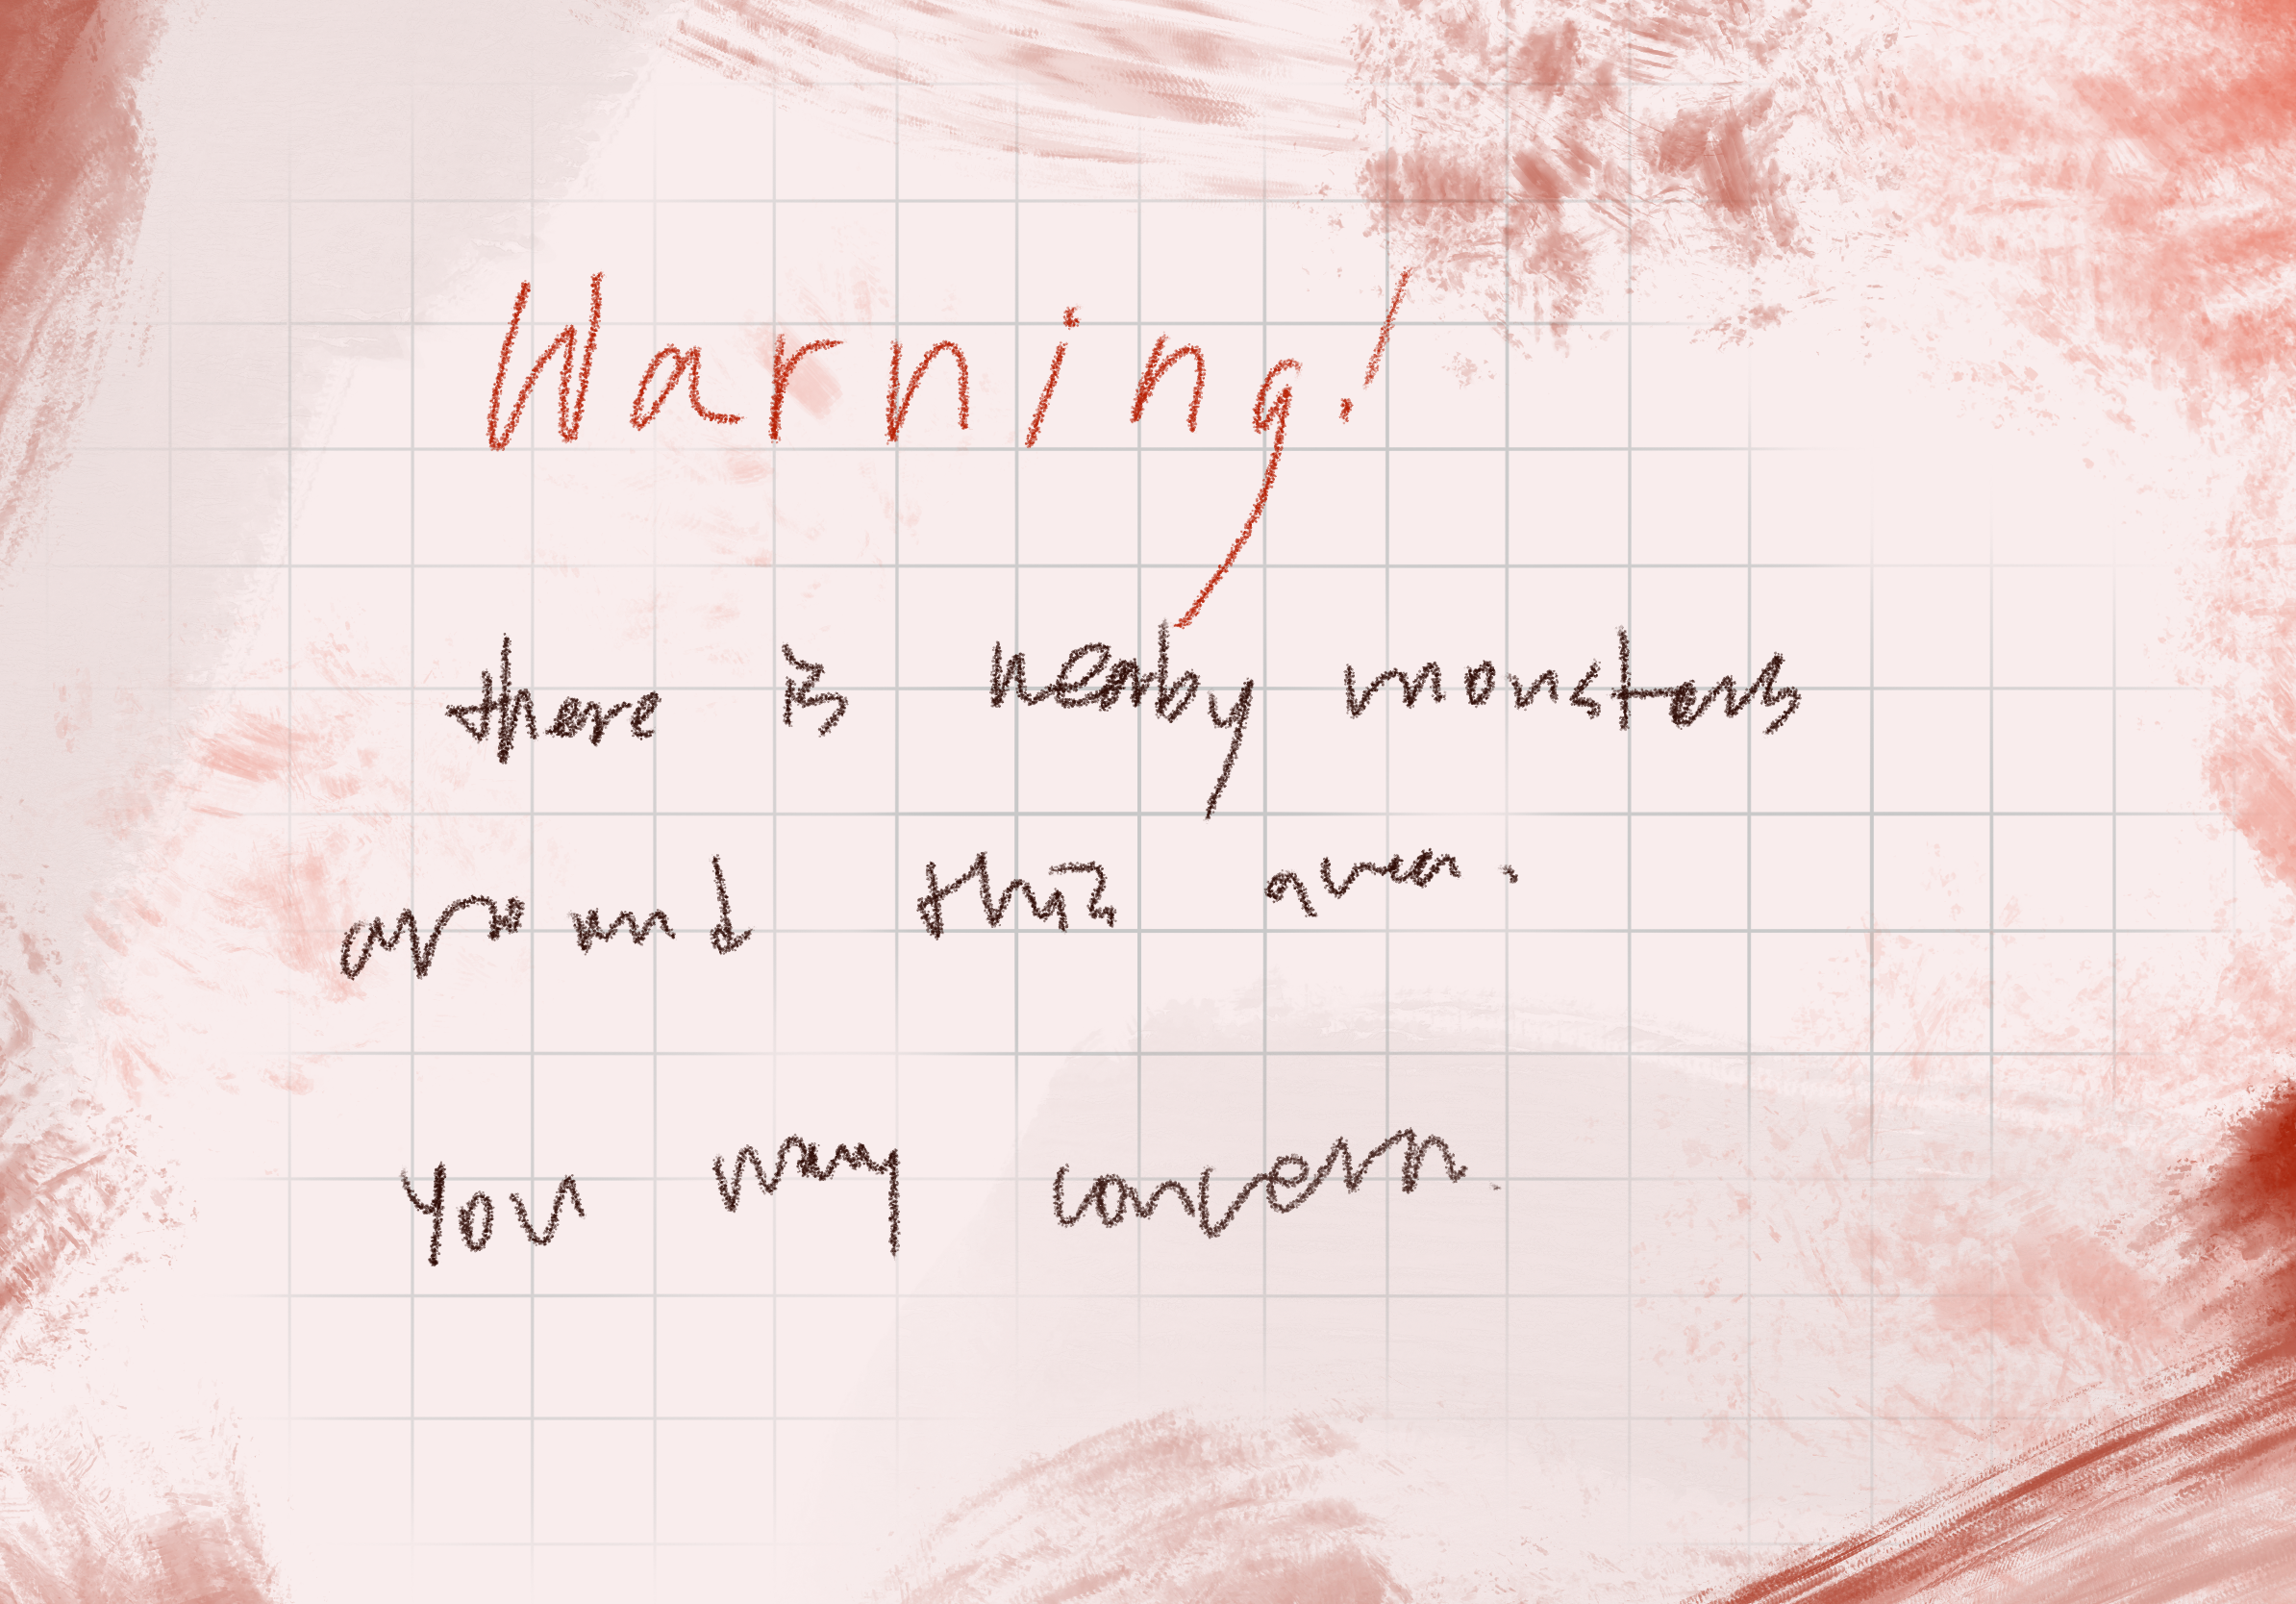 Warning!
there is nearby monsters
around this area.
You may concern.